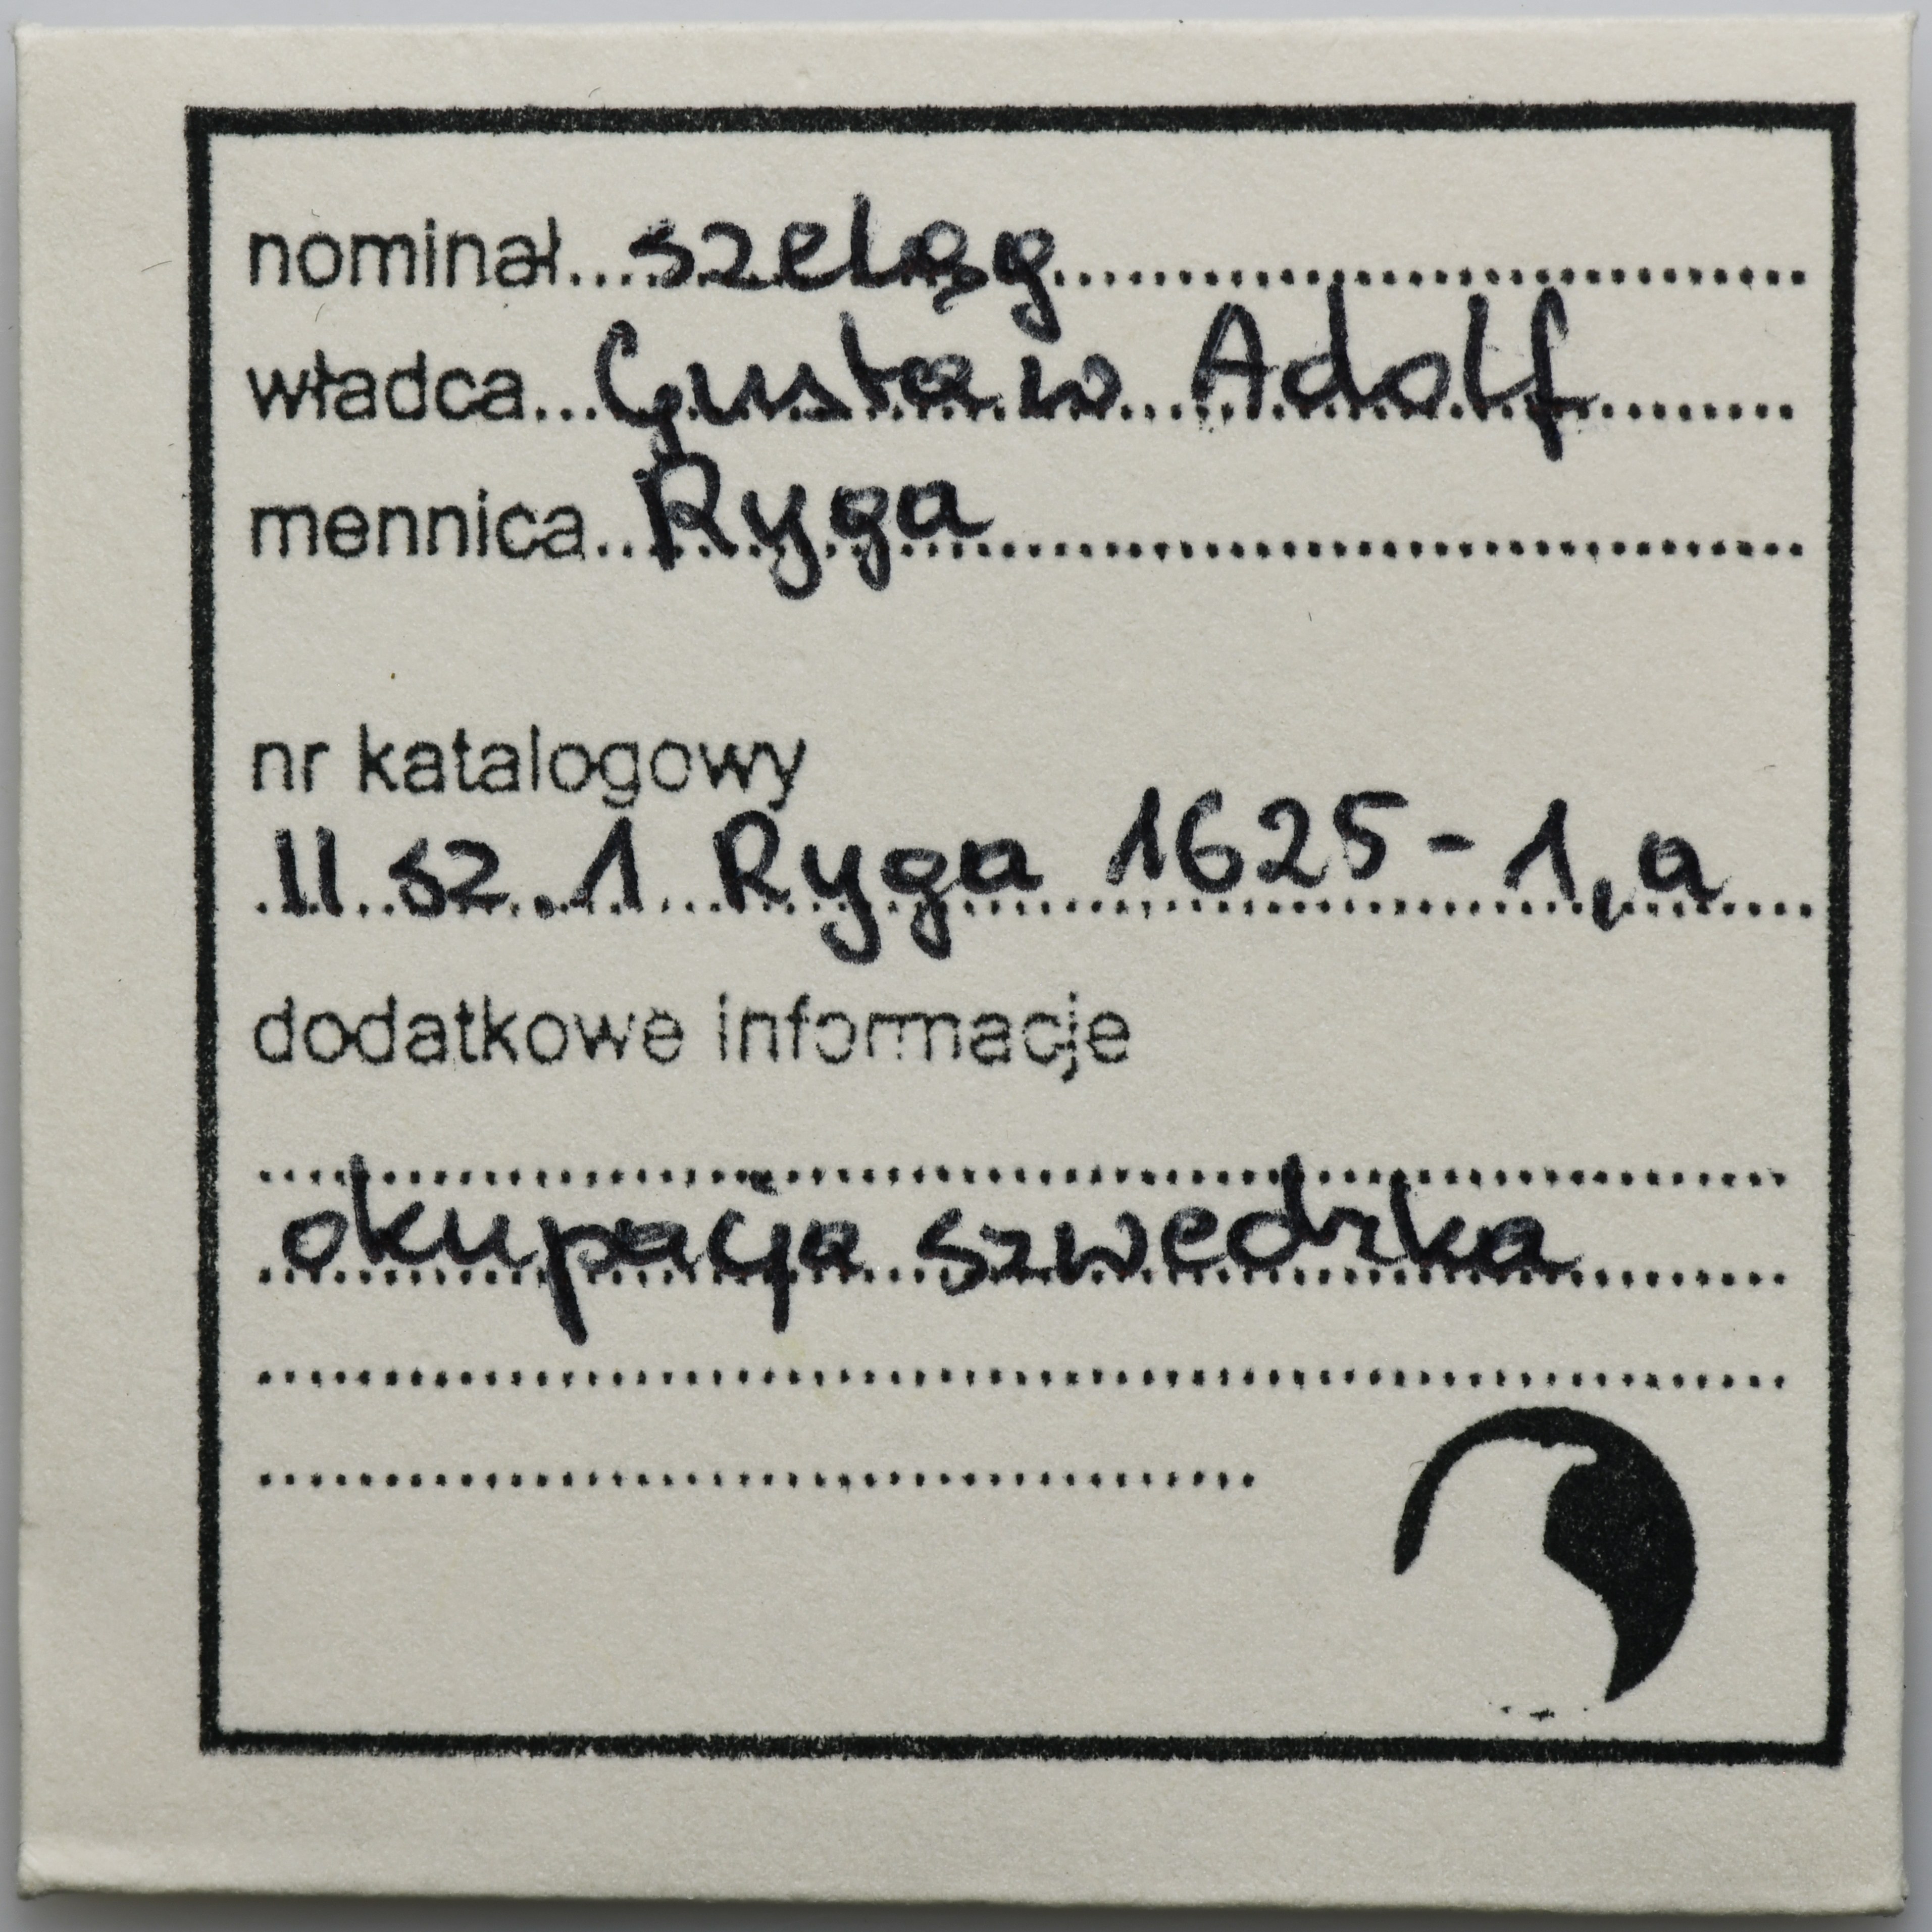 nominał szeląg
władca Gustaw Adolf
mennica Ryga
nr katalogowy
II sz.1 Ryga 1625-1,a
dodatkowe informacje
okupacja szwedzka